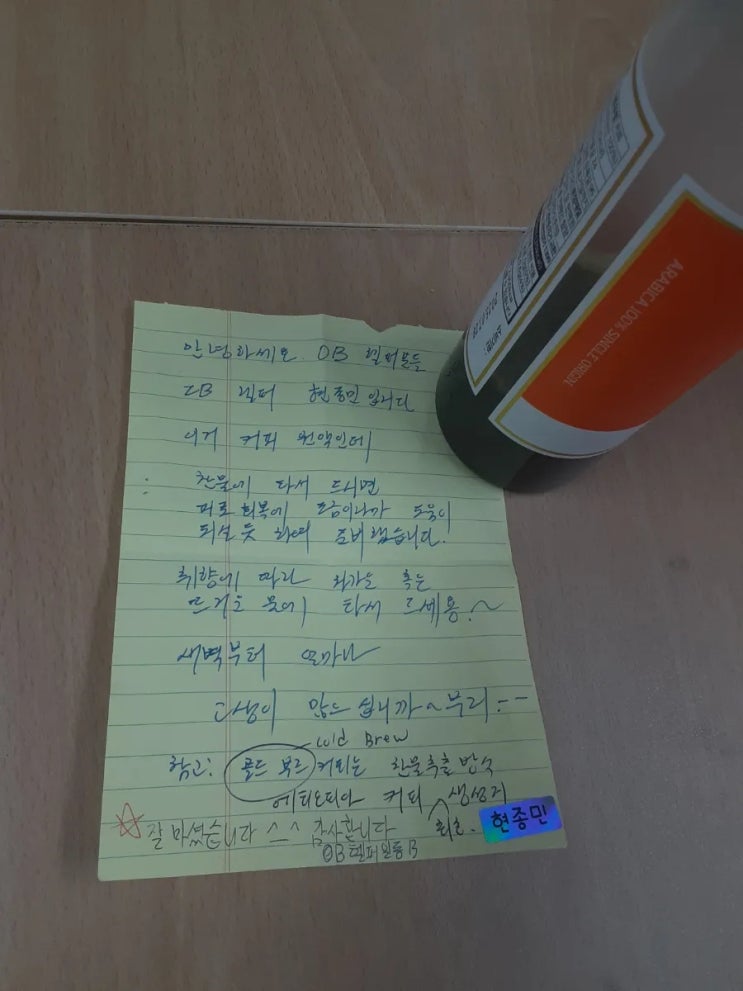 안녕하세요. OB 헬퍼분들
OB 헬퍼 현종민 입니다
이거 커피 원액인데
찬물에 타서 드시면
피로회복에 조금이나마 도움이
되실듯 하여 준비했습니다.
취향에 따라 차가운 혹은
뜨거운 물에 타서 드세용.~
새벽부터 얼마나
고생이 많으십니까~
Cold Brew
참고: 콜드 부르 커피는 찬물추출방식
에티오피아 커피 생성지
최초.
현종민
☆ 잘 마셨습니다 ^^ 감사합니다
ARABICA 100% SINGLE ORIGIN